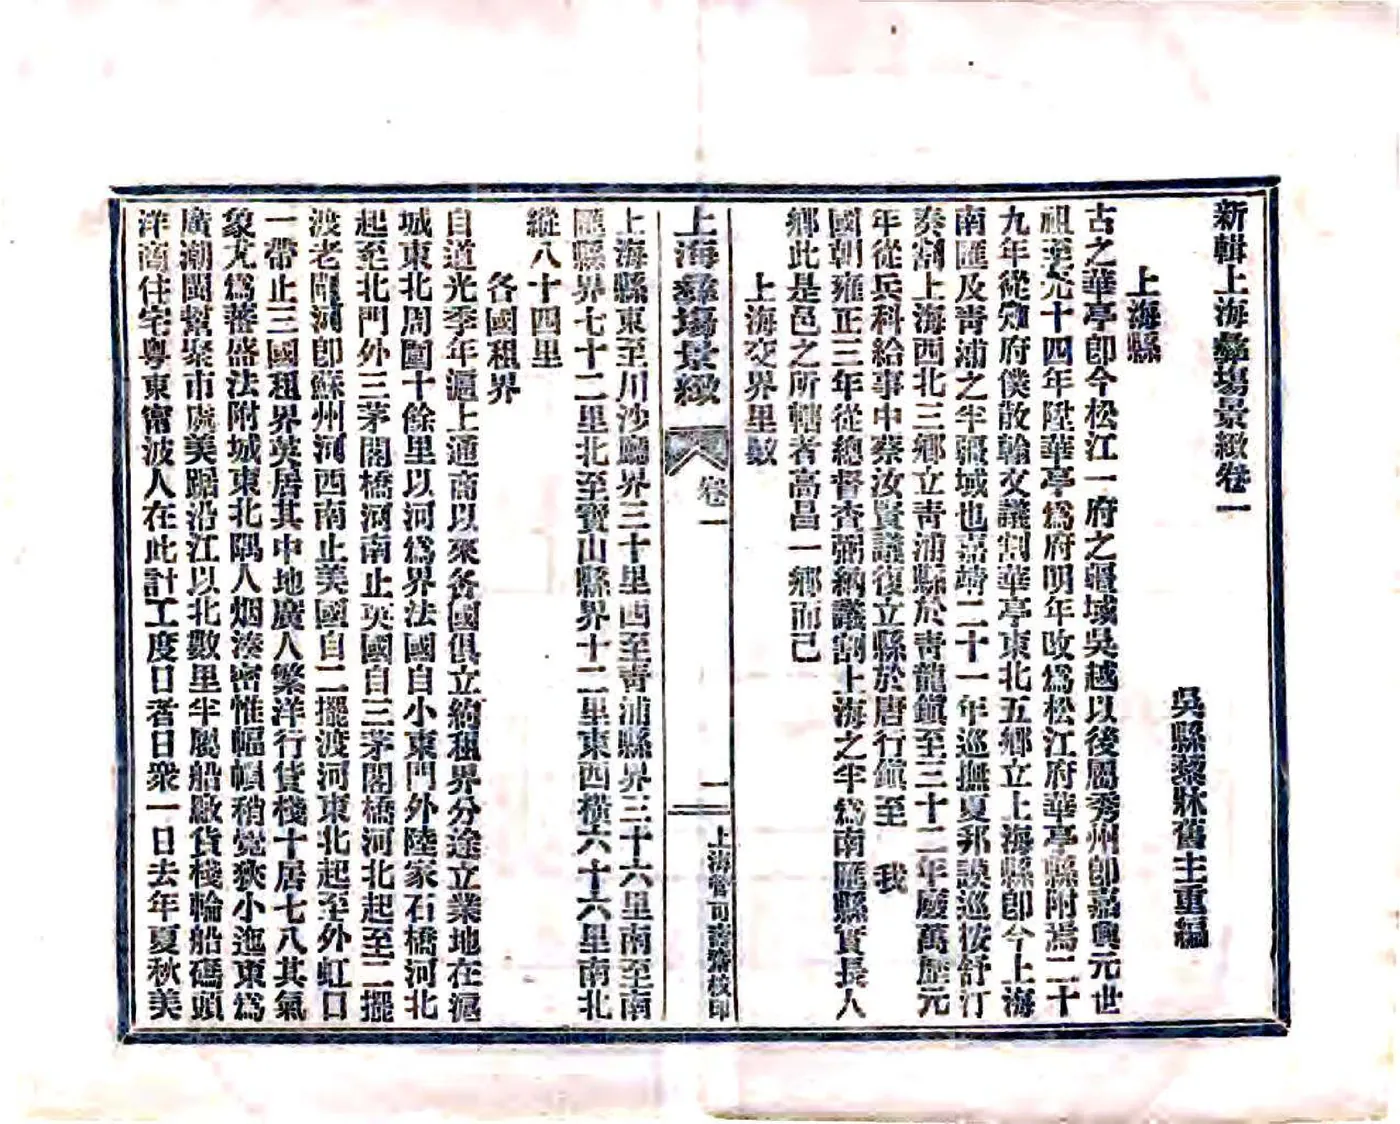 新輯上海彝場景緻卷一
吳縣藜牀舊主重編
上海縣
古之華亭卽今松江一府之疆域吳越以後屬秀州卽嘉興元世
祖至元十四年陞華亭爲府明年改爲松江府華亭縣附焉二十
九年從知府僕散翰文議割華亭東北五鄉立上海縣卽今上海
南匯及靑浦之半疆域也嘉靖二十一年巡撫夏邦謨巡按舒汀
奏割上海西北三鄉立靑浦縣於靑龍鎭至三十二年廢萬歷元
年從兵科給事中蔡汝賢議復立縣於唐行鎭至 我
國朝雍正三年從總督查弼納議割上海之半爲南匯縣實長人
鄉此是邑之所轄者高昌一鄉而已
上海交界里數
上海彝場景緻
卷一
一
上海管可壽齋校印
上海縣東至川沙廳界三十里西至靑浦縣界三十六里南至南
匯縣界七十二里北至寶山縣界十二里東西橫六十六里南北
縱八十四里
各國租界
自道光季年滬上通商以來各國俱立約租界分途立業地在滬
城東北周圍十餘里以河爲界法國自小東門外陸家石橋河北
起至北門外三茅閣橋河南止英國自三茅閣橋河北起至二擺
渡老閘河卽蘇州河西南止美國自二擺渡河東北起至外虹口
一帶止三國租界英居其中地廣人繁洋行貨棧十居七八其氣
象尤爲蕃盛法附城東北隅人烟湊密惟幅𢄙稍覺狹小迤東爲
廣潮閩幫聚市處美踞沿江以北數里半屬船廠貨棧輪船碼頭
洋商住宅粵東甯波人在此計工度日者日衆一日去年夏秋美